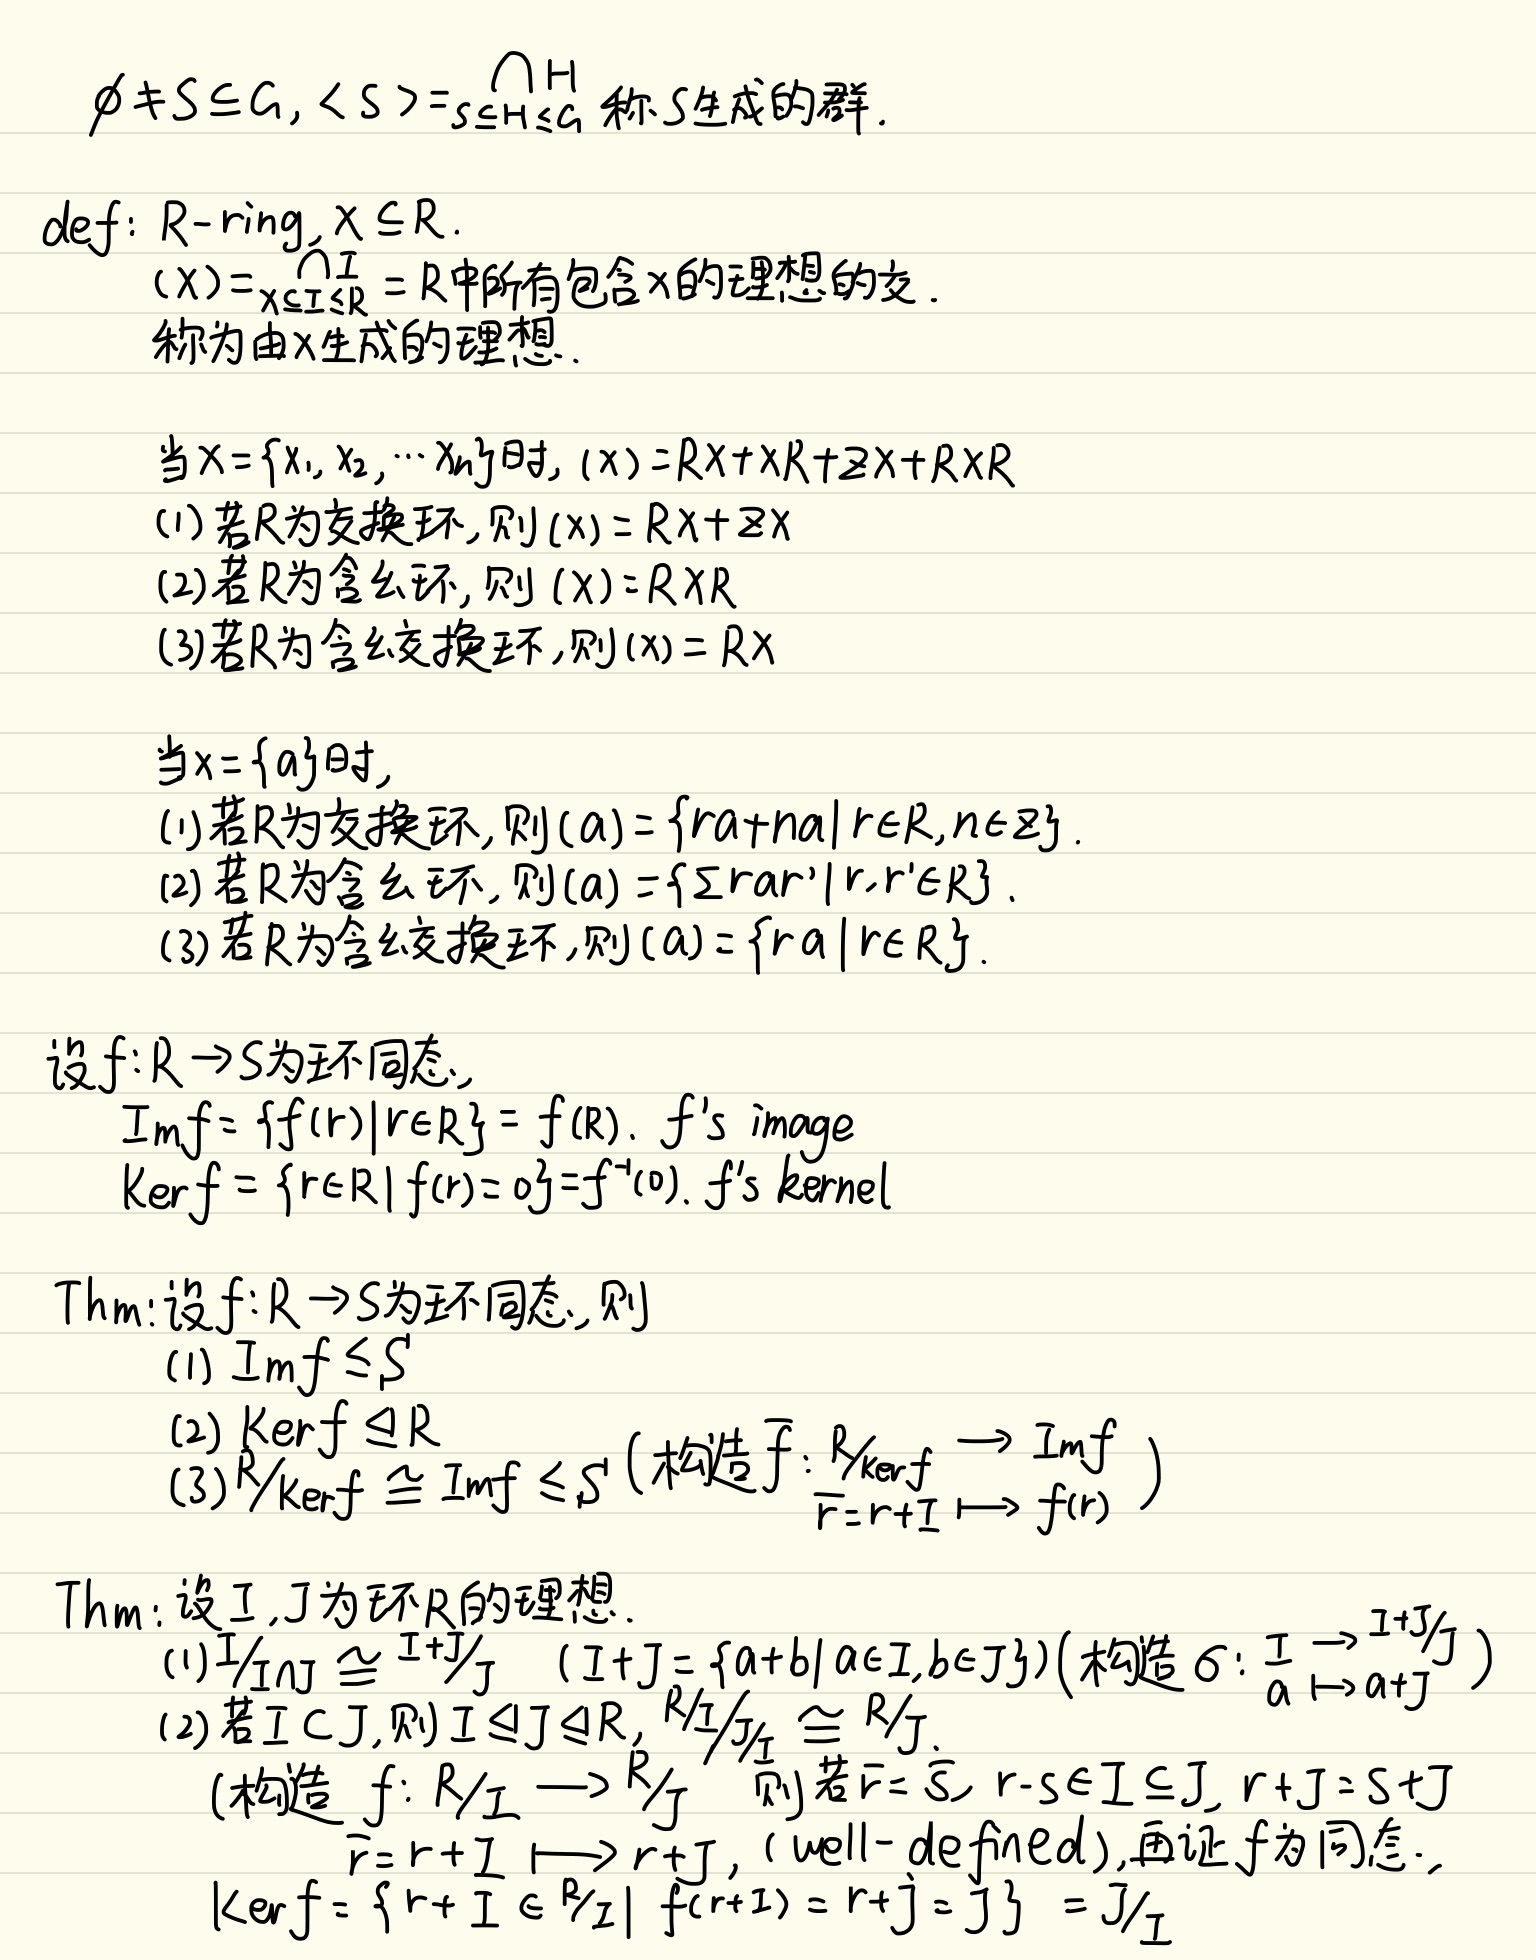 ∅≠S⊆G, <S>=⋂H 称S生成的群.
S⊆H≤G
def: R-ring, X⊆R.
(X)=⋂I =R中所有包含X的理想的交.
X⊆I≤R
称为由X生成的理想.
当X={x₁, x₂, ⋯xₙ}时, (X)=RX+XR+ZX+RXR
(1)若R为交换环,则(X)=RX+ZX
(2)若R为含幺环,则(X)=RXR
(3)若R为含幺交换环,则(X)=RX
当X={a}时,
(1)若R为交换环,则(a)={ra+na|r∈R,n∈Z}.
(2)若R为含幺环,则(a)={Σrar'|r,r'∈R}.
(3)若R为含幺交换环,则(a)={ra|r∈R}.
设f:R→S为环同态,
Imf={f(r)|r∈R}=f(R). f's image
Kerf={r∈R|f(r)=0}=f⁻¹(0). f's kernel
Thm:设f:R→S为环同态,则
(1) Imf≤S
(2) Kerf⊴R
(3) R/Kerf≅Imf≤S (构造f̅: R/Kerf → Imf
r̅=r+I ↦ f(r) )
Thm:设I,J为环R的理想.
(1) I/I∩J≅I+J/J (I+J={a+b|a∈I,b∈J})(构造σ: I → I+J/J
a ↦ a+J )
(2)若I⊂J,则I⊴J⊴R, R/I/J/I≅R/J.
(构造 f: R/I → R/J 则若r̅=s̅, r-s∈I⊆J, r+J=s+J
r̅=r+I ↦ r+J, (well-defined),再证f为同态.,
Kerf={r+I∈R/I| f(r+I)=r+J=J} =J/I